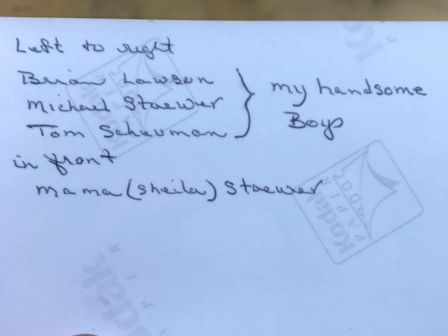 Left to right
Brian Lawson
Michael Staewer
Tom Scheuman
} my handsome
Boys
in front
mama (Sheila) Staewer
Kodak
PAPER
Kodak
Kodak